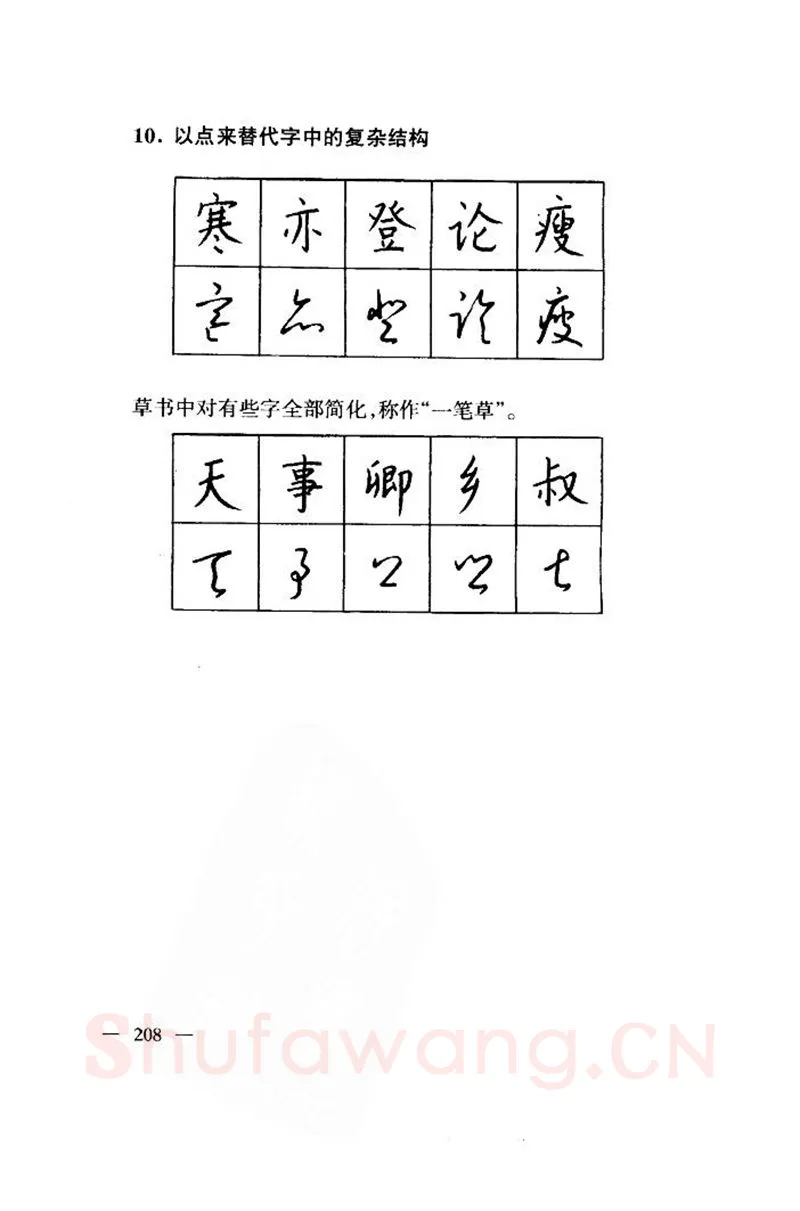 10. 以点来替代字中的复杂结构
寒 亦 登 论 瘦
寒 亦 登 论 瘦
草书中对有些字全部简化,称作“一笔草”。
天 事 卿 乡 叔
天 事 卿 乡 叔
— 208 —
Shufawang.CN